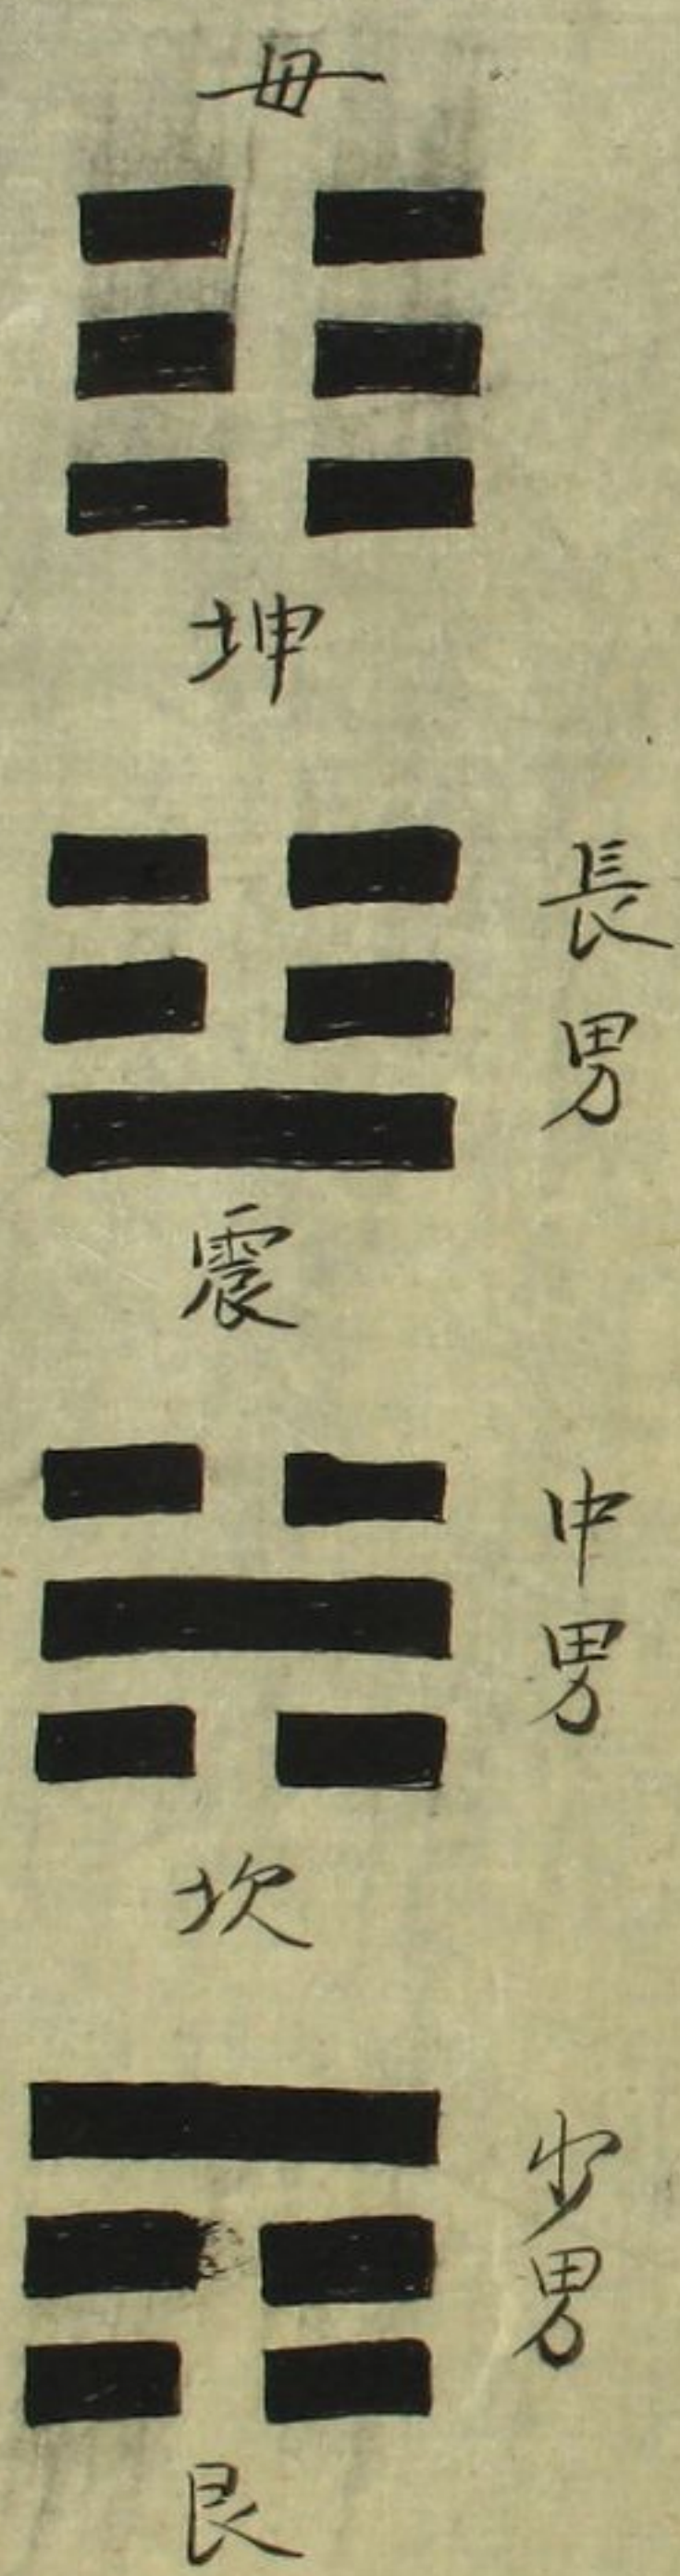 毋
坤
長男
震
中男
坎
少男
艮